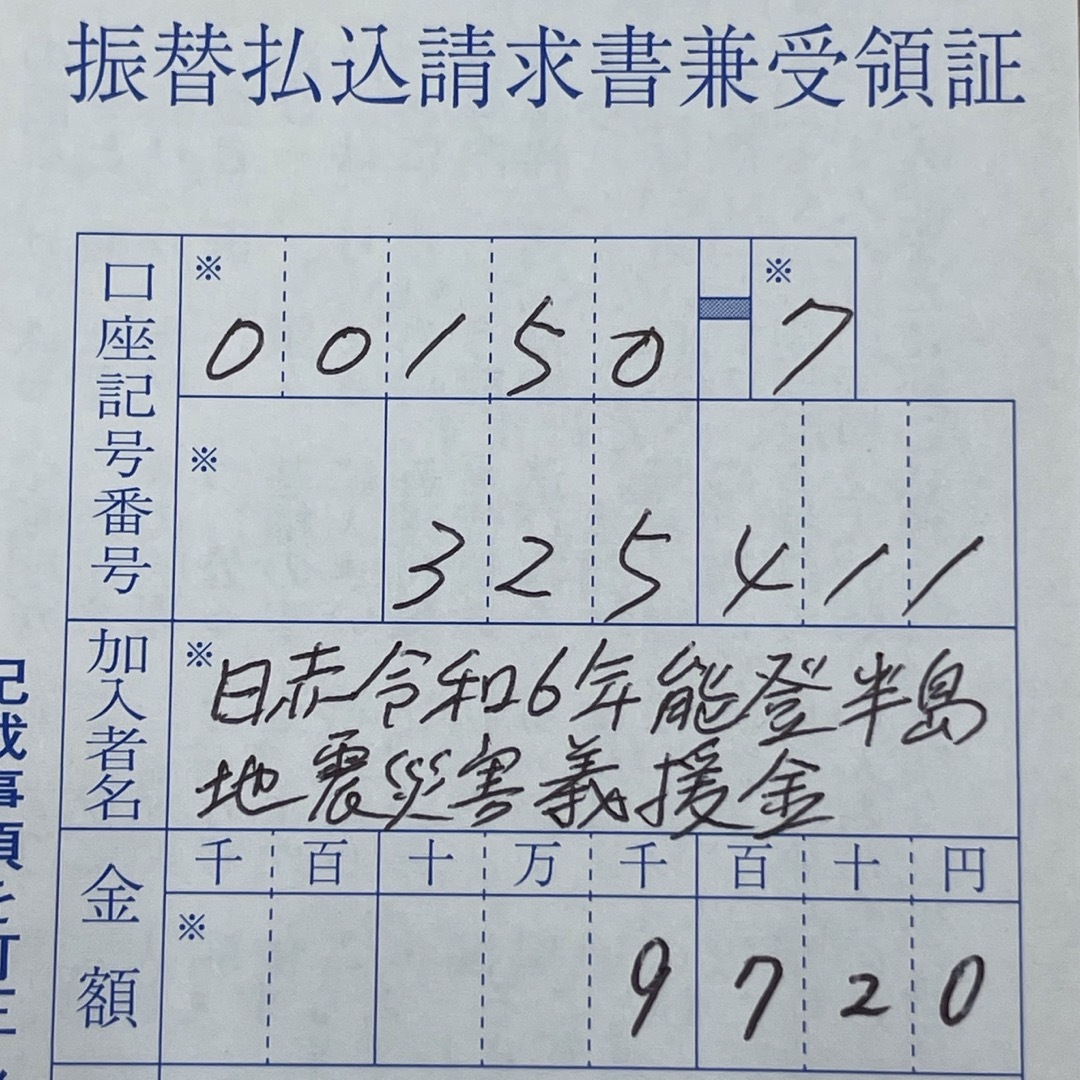 振替払込請求書兼受領証
口座記号番号
※ 00150 - ※ 7
※ 325411
加入者名
※ 日赤令和6年能登半島
地震災害義援金
金額
千 百 十 万 千 百 十 円
※ 9720
記載事項を訂正